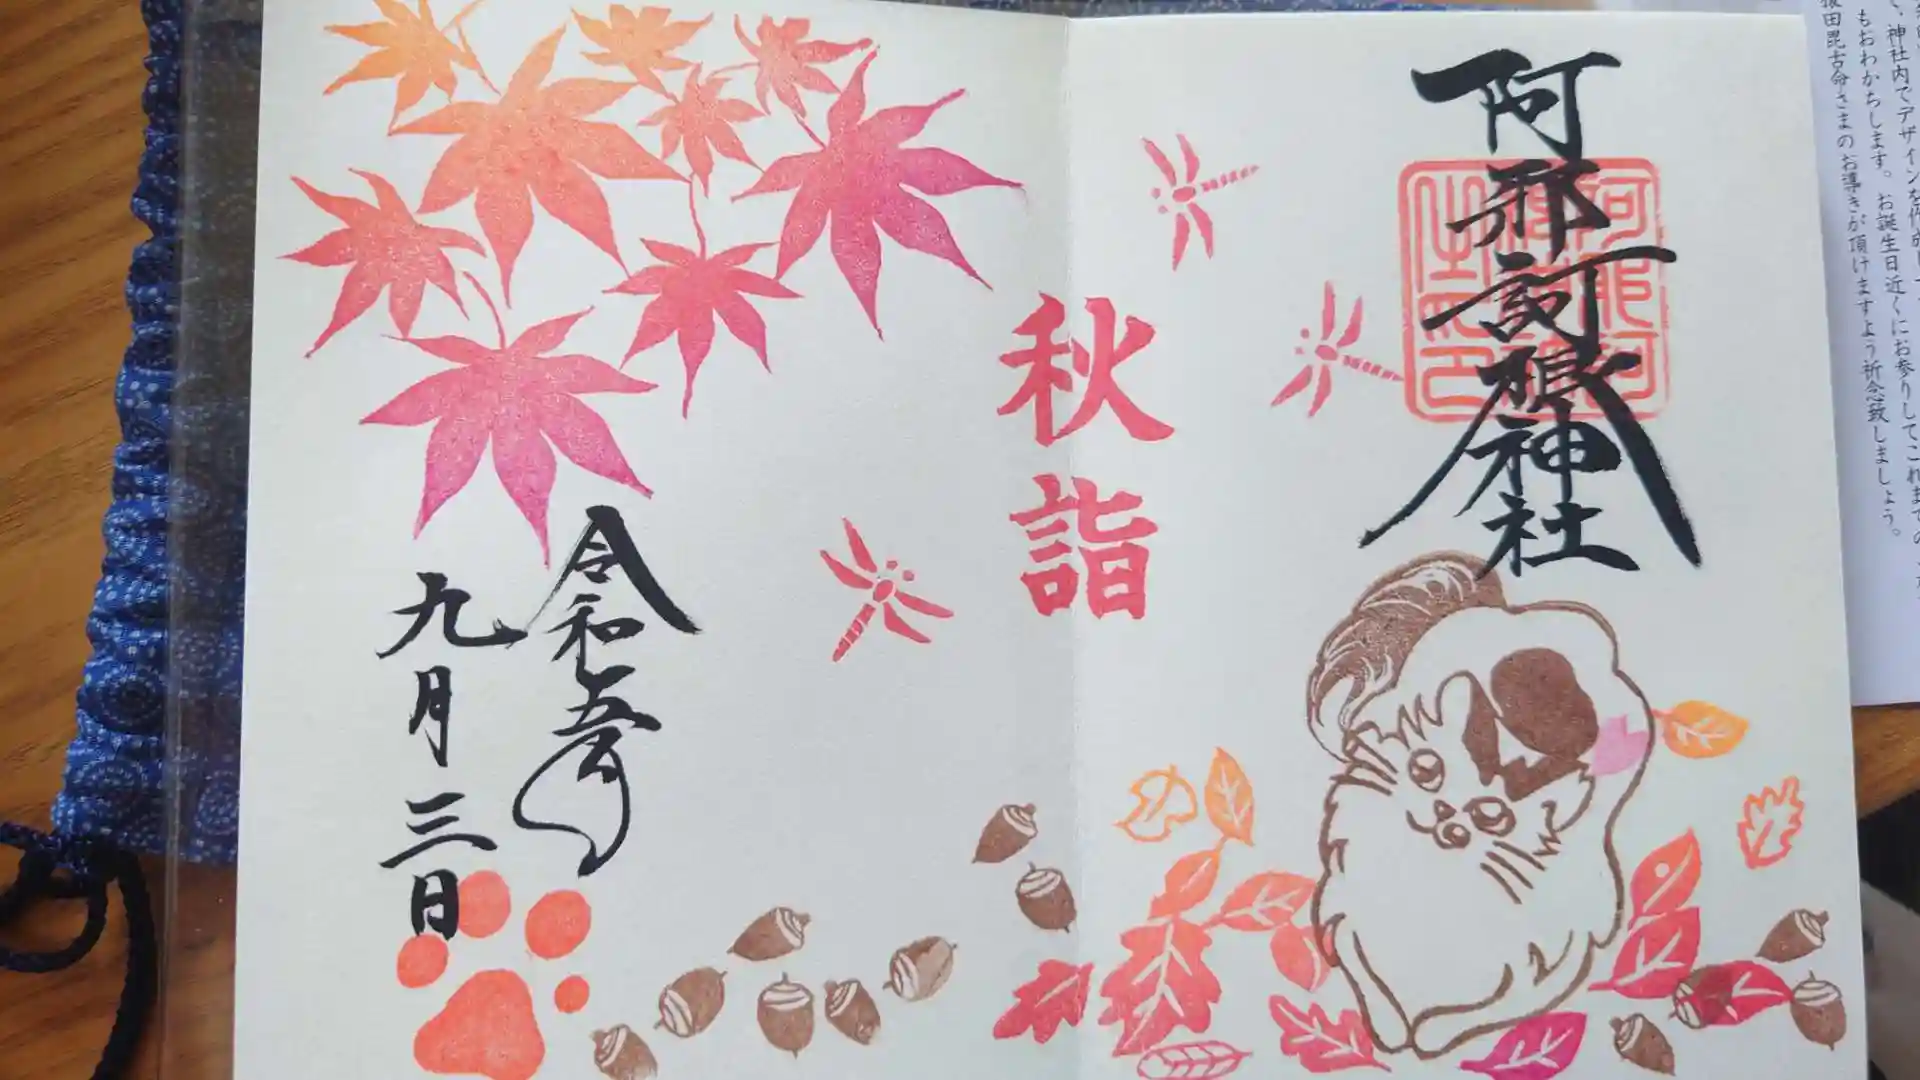 神社内でデザインを作成し
もおわかちします。お誕生日近くにお参りしてこれまでの
猿田毘古命さまのお導きが頂けますよう祈念致しましょう。
阿邪訶根神社
秋詣
令和五年
九月三日